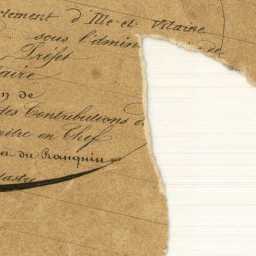 rtement d'Ille et Vilaine
sous l'admin
Préfet
aire
n de
des Contributions d
mètre en Chef
du
astre